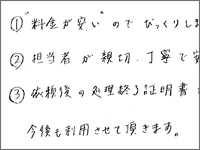 ①"料金が安い"のでびっくりしま
②担当者が親切、丁寧で安
③依頼後の処理終了証明書
今後も利用させて頂きます。